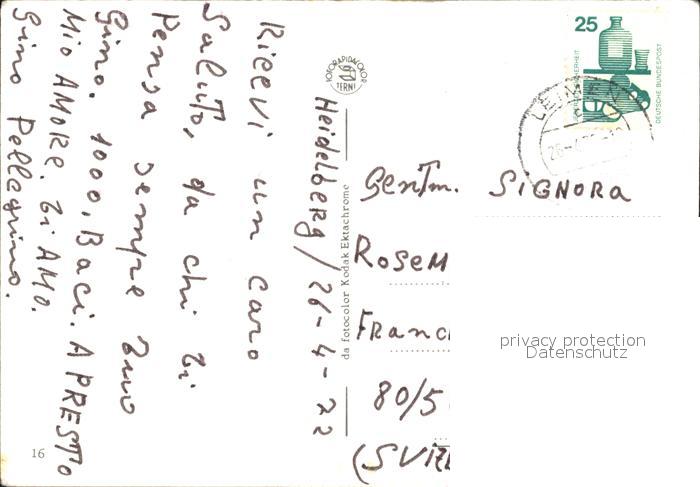 Heidelberg / 26-4-72
Ricevi un caro
Saluto, da chi ti
Pensa sempre tuo
Gino. 1000, Baci. A PRESTO
Mio AMORE. ti AMO.
Gino Pellegrino.
da fotocolor Kodak Ektachrome
FOTORAPIDACOLOR
TERNI
16
25
DEUTSCHE BUNDESPOST
LEIMEN
Gentm. SIGNORA
Rosem
Franc
80/5
(SVIZ
privacy protection
Datenschutz